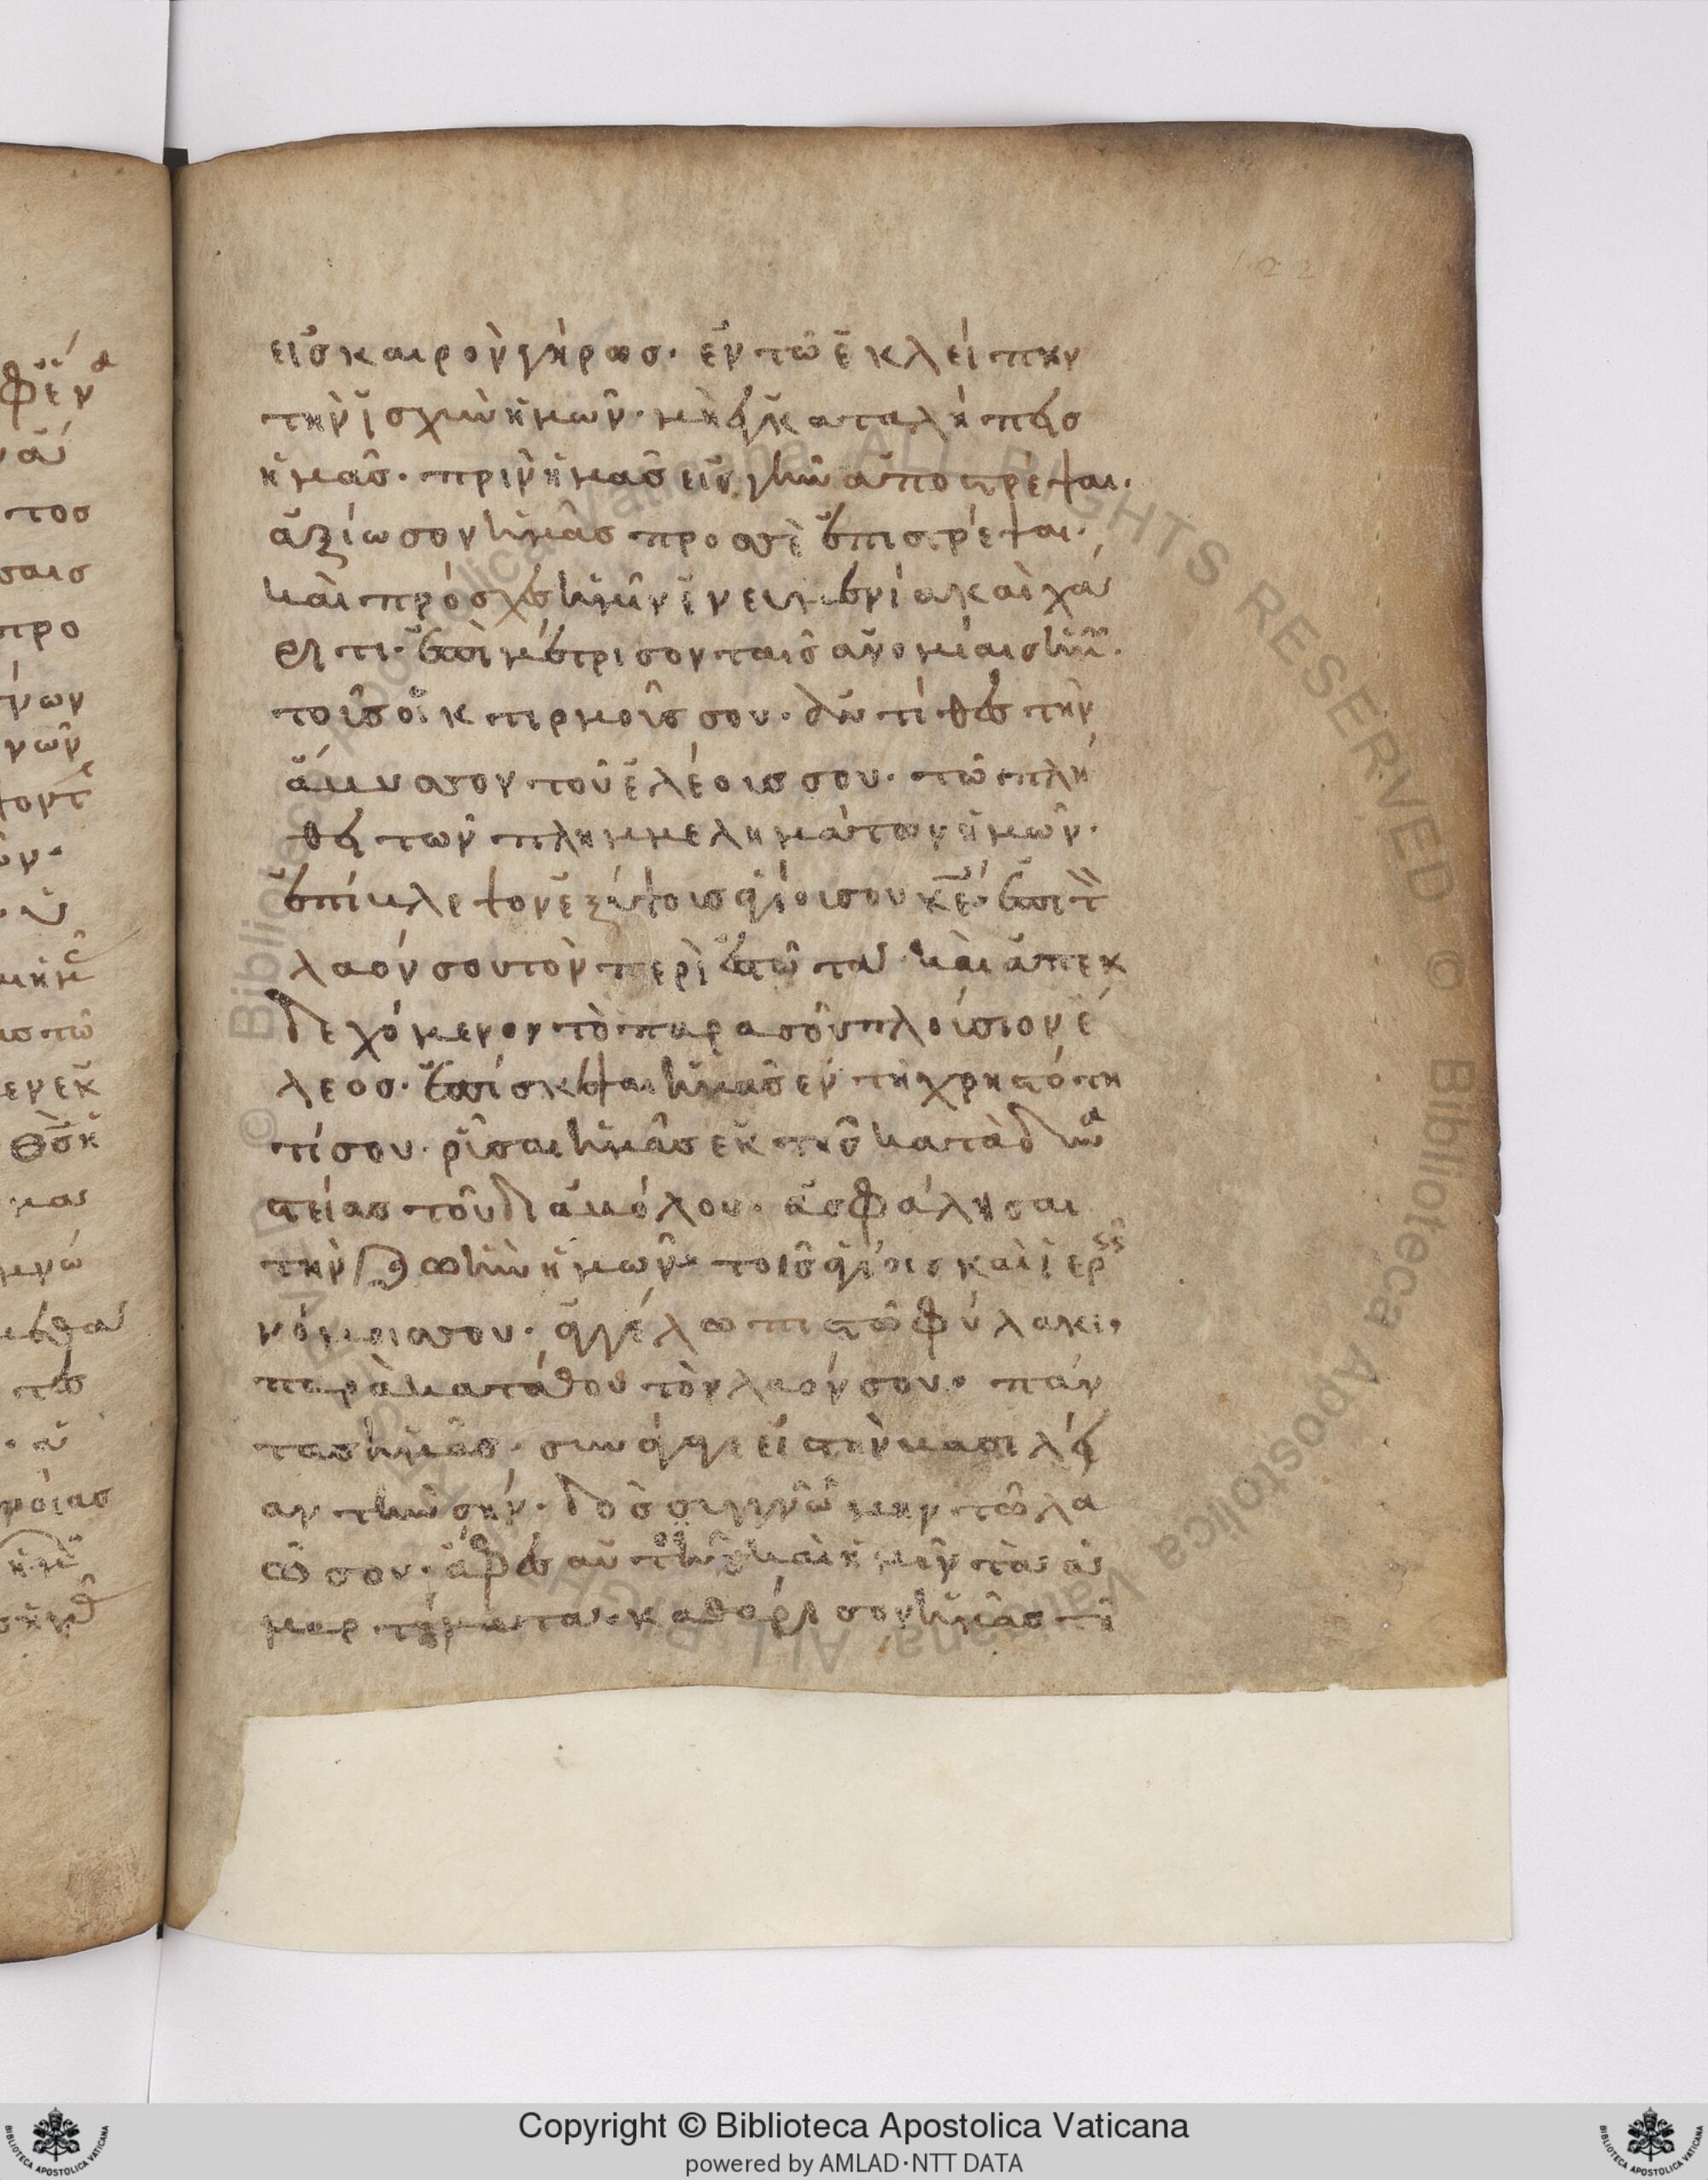 122
εἰς καιρὸν γήρως· ἐν τῷ ἐκλείπην
τὴν ἰσχὺν ἡμῶν· μὴ ἐγκαταλήπεις
ἡμᾶς· πρὶν ἡμᾶς εἰς γῆν ἀποστρέψαι·
ἀξίωσον ἡμᾶς πρὸς σὲ ἐπιστρέψαι·
καὶ πρόσχες ἡμῖν ἐν εὐμενία καὶ χά
ριτι· ἐπιμέτρισον ταῖς ἀνομίαις ἡμ
τοῖς οἰκτιρμοῖς σου· ἀντίθες τὴν
ἄβυσσον τοῦ ἐλέους σου· τῷ πλή
θει τῶν πλημμελημάτων ἡμῶν·
ἐπίβλεψον ἐξ ὕψους ἁγίου σου κε· ἐπὶ τ
λαόν σου τὸν περιεστῶτα· καὶ ἀπεκ
δεχόμενον τὸ παρὰ σοῦ πλούσιον ἔ
λεος· ἐπίσκεψαι ἡμᾶς ἐν τῇ χρηστότη
τί σου· ῥῦσαι ἡμᾶς ἐκ τῆς καταδυνα
στείας τοῦ διαβόλου· ἀσφάλησαι
τὴν ζωὴν ἡμῶν· τοῖς ἁγίοις καὶ ἱεροῖς
νόμοις σου· ἀγγέλω πιστῷ φύλακι·
παρακατάθου τὸν λαόν σου· πάν
τας ἡμᾶς· συνάγαγε εἰς τὴν βασιλεί
αν τὴν σήν· δὸς συγγνώμην τῷ λα
ῷ σου· ἄφες αὐτοῖς καὶ ἡμῖν τὰ ἁ
μαρτήματα· καθάρισον ἡμᾶς τῇ
Copyright © Biblioteca Apostolica Vaticana
powered by AMLAD·NTT DATA